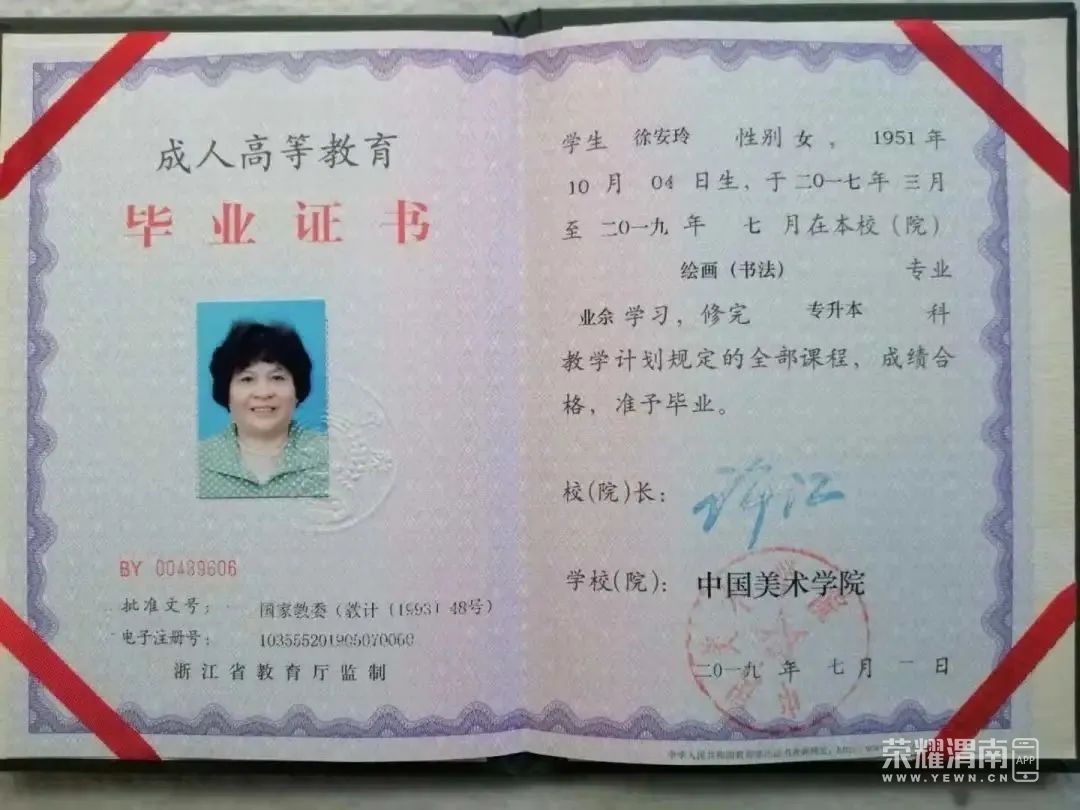 成人高等教育
毕业证书
BY 00489606
批准文号： 国家教委（教计〔1993〕48号）
电子注册号： 103555201905070060
浙江省教育厅监制
学生 徐安玲 性别 女，1951 年
10 月 04 日生，于二〇一七年 三月
至 二〇一九 年 七 月在本校（院）
绘画（书法） 专业
业余 学习，修完 专升本 科
教学计划规定的全部课程，成绩合
格，准予毕业。
校（院）长： 许江
学校（院）： 中国美术学院
二〇一九 年 七月 一日
荣耀渭南 APP
WWW.YEWN.CN